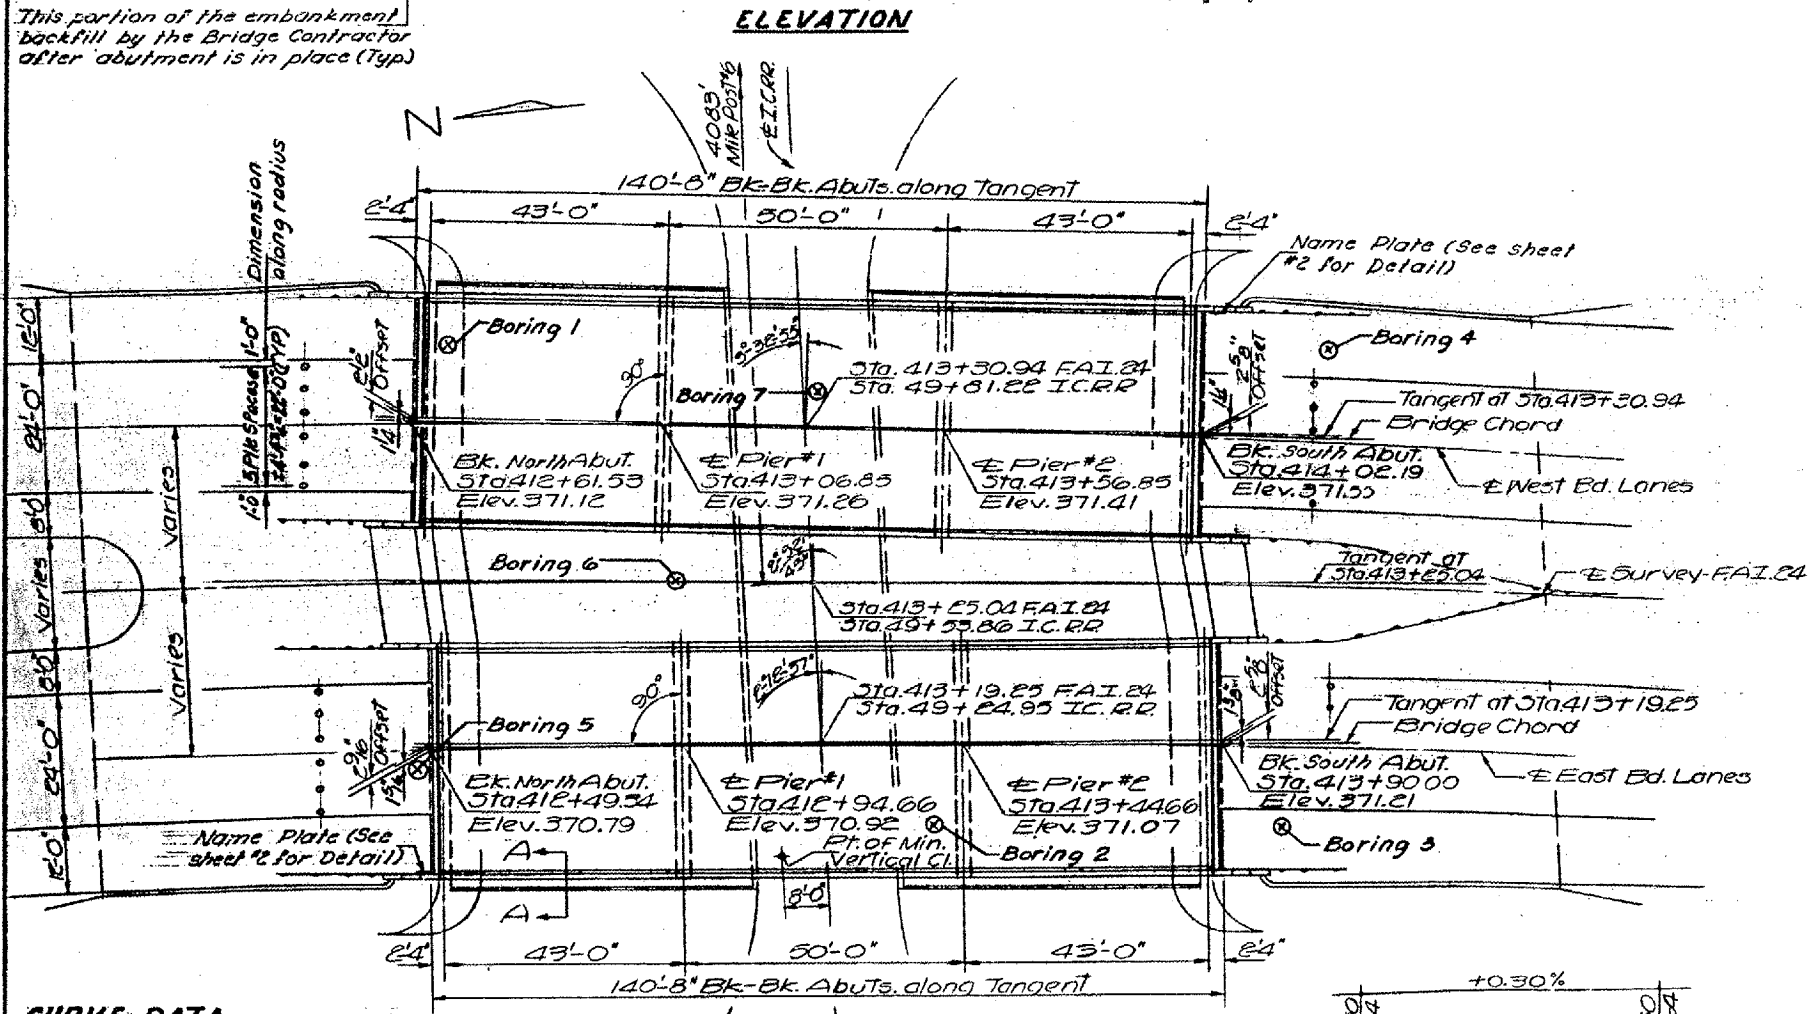 This portion of the embankment
backfill by the Bridge Contractor
after abutment is in place (Typ)
ELEVATION
N
4083'
Mile Post #6
℄ I.C.R.R.
140'-8" Bk-Bk. Abuts. along Tangent
2'-4"
43'-0"
50'-0"
43'-0"
2'-4"
Name Plate (See sheet
#2 for Detail)
Dimension
along radius
12'-0"
24'-0"
8'-0"
Varies
8'-0"
24'-0"
12'-0"
Varies
Varies
1'-0"
1'-0"
Offset
Boring 1
90°
Boring 7
Sta. 413+30.94 F.A.I. 24
Sta. 49+81.22 I.C.R.R.
2 5/8"
Offset
Boring 4
Tangent at Sta. 413+30.94
Bridge Chord
Bk. North Abut.
Sta. 412+61.53
Elev. 371.12
℄ Pier #1
Sta. 413+06.85
Elev. 371.26
℄ Pier #2
Sta. 413+56.85
Elev. 371.41
Bk. South Abut.
Sta. 414+02.19
Elev. 371.55
℄ West Bd. Lanes
Boring 6
Tangent at
Sta. 413+25.04
℄ Survey-F.A.I. 24
Sta. 413+25.04 F.A.I. 24
Sta. 49+53.86 I.C.R.R.
90°
2°-12'-57"
Sta. 413+19.25 F.A.I. 24
Sta. 49+24.95 I.C.R.R.
2 5/8"
Offset
Tangent at Sta. 413+19.25
Bridge Chord
Boring 5
2 9/16"
Offset
Bk. North Abut.
Sta. 412+49.34
Elev. 370.79
℄ Pier #1
Sta. 412+94.66
Elev. 370.92
℄ Pier #2
Sta. 413+44.66
Elev. 371.07
Bk. South Abut.
Sta. 413+90.00
Elev. 371.21
℄ East Bd. Lanes
Name Plate (See
sheet #2 for Detail)
A
A
Pt. of Min.
Vertical Cl.
Boring 2
Boring 3
8'-0"
2'-4"
43'-0"
50'-0"
43'-0"
2'-4"
140'-8" Bk-Bk. Abuts. along Tangent
+0.30%
CURVE DATA